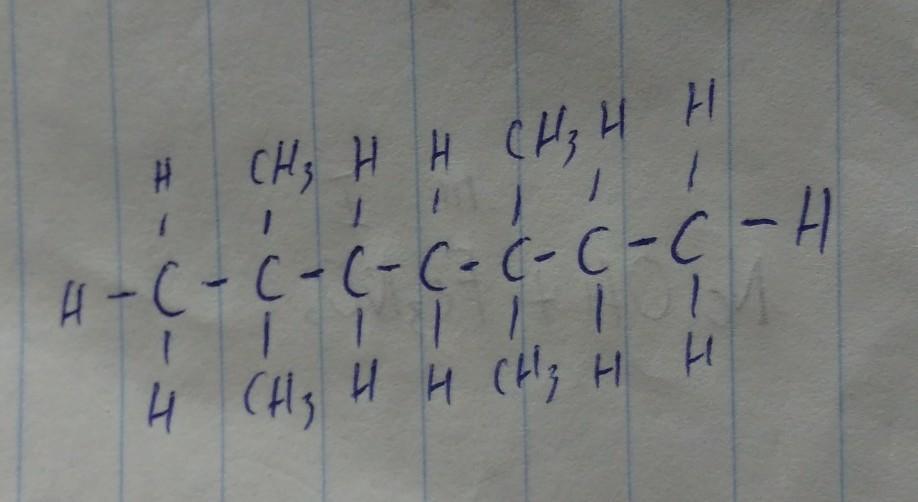 H CH3 H H CH3 H H
H - C - C - C - C - C - C - C - H
H CH3 H H CH3 H H